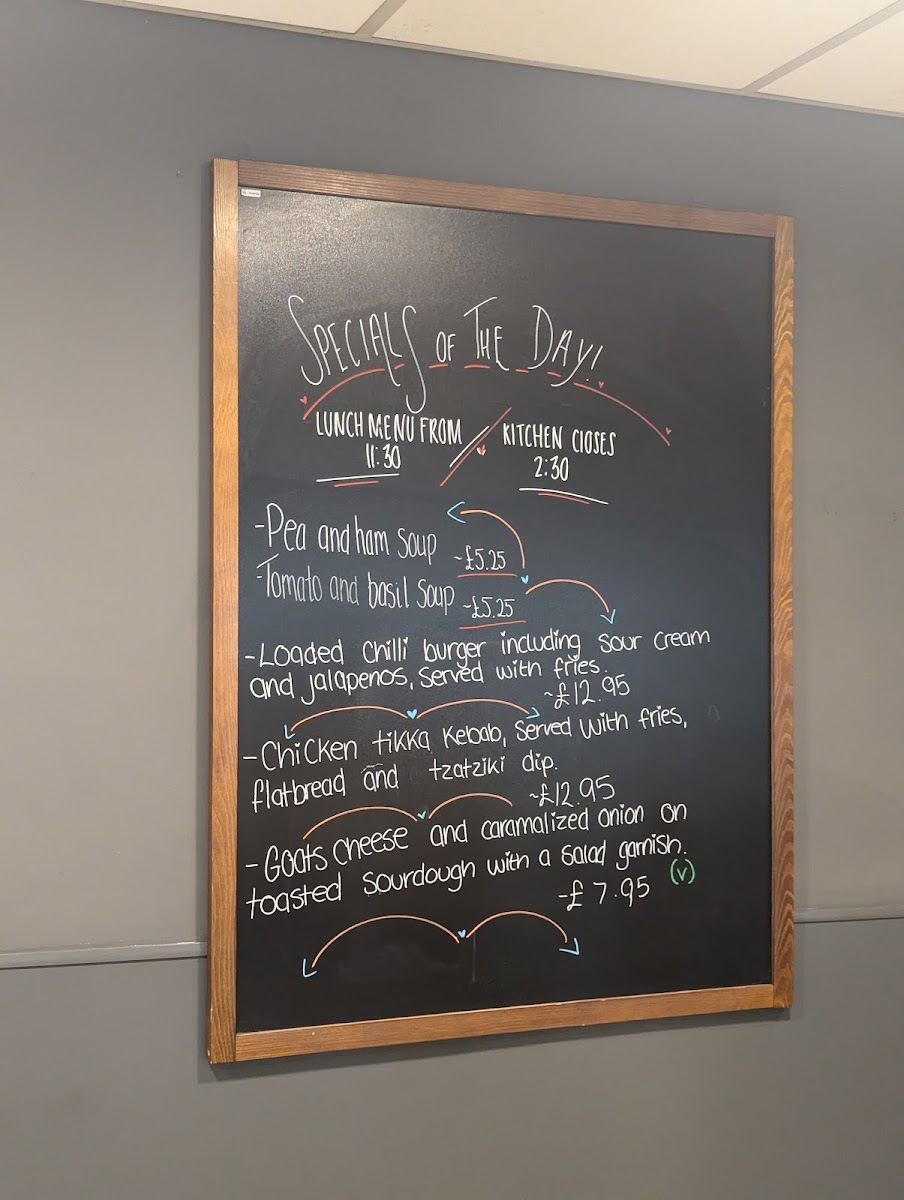 SPECIALS OF THE DAY!
LUNCH MENU FROM
11:30
KITCHEN CLOSES
2:30
-Pea and ham soup ~£5.25
-Tomato and basil soup ~£5.25
-Loaded chilli burger including sour cream
and jalapenos, served with fries.
~£12.95
-Chicken tikka kebab, served with fries,
flatbread and tzatziki dip.
~£12.95
-Goats cheese and caramalized onion on
toasted sourdough with a salad garnish.
-£7.95 (v)